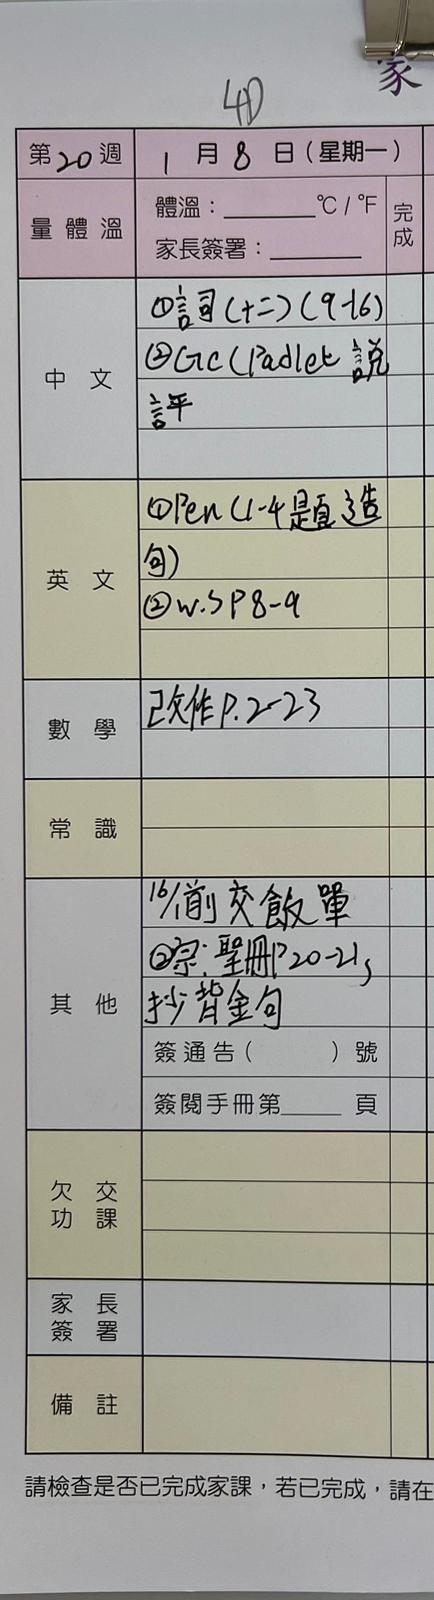 家
4D
第20週 1月8日(星期一)
量體溫
體溫：______°C/°F
家長簽署：______
完成
中文
①詞(十二)(9-16)
②GC(Padlet 說
評
英文
①Pen(1-4題造
句)
②W.S P8-9
數學
改作P.2-23
常識
其他
16/1前交飯單
②宗:聖冊P20-21,
抄背金句
簽通告( )號
簽閱手冊第____頁
欠交功課
家長簽署
備註
請檢查是否已完成家課，若已完成，請在